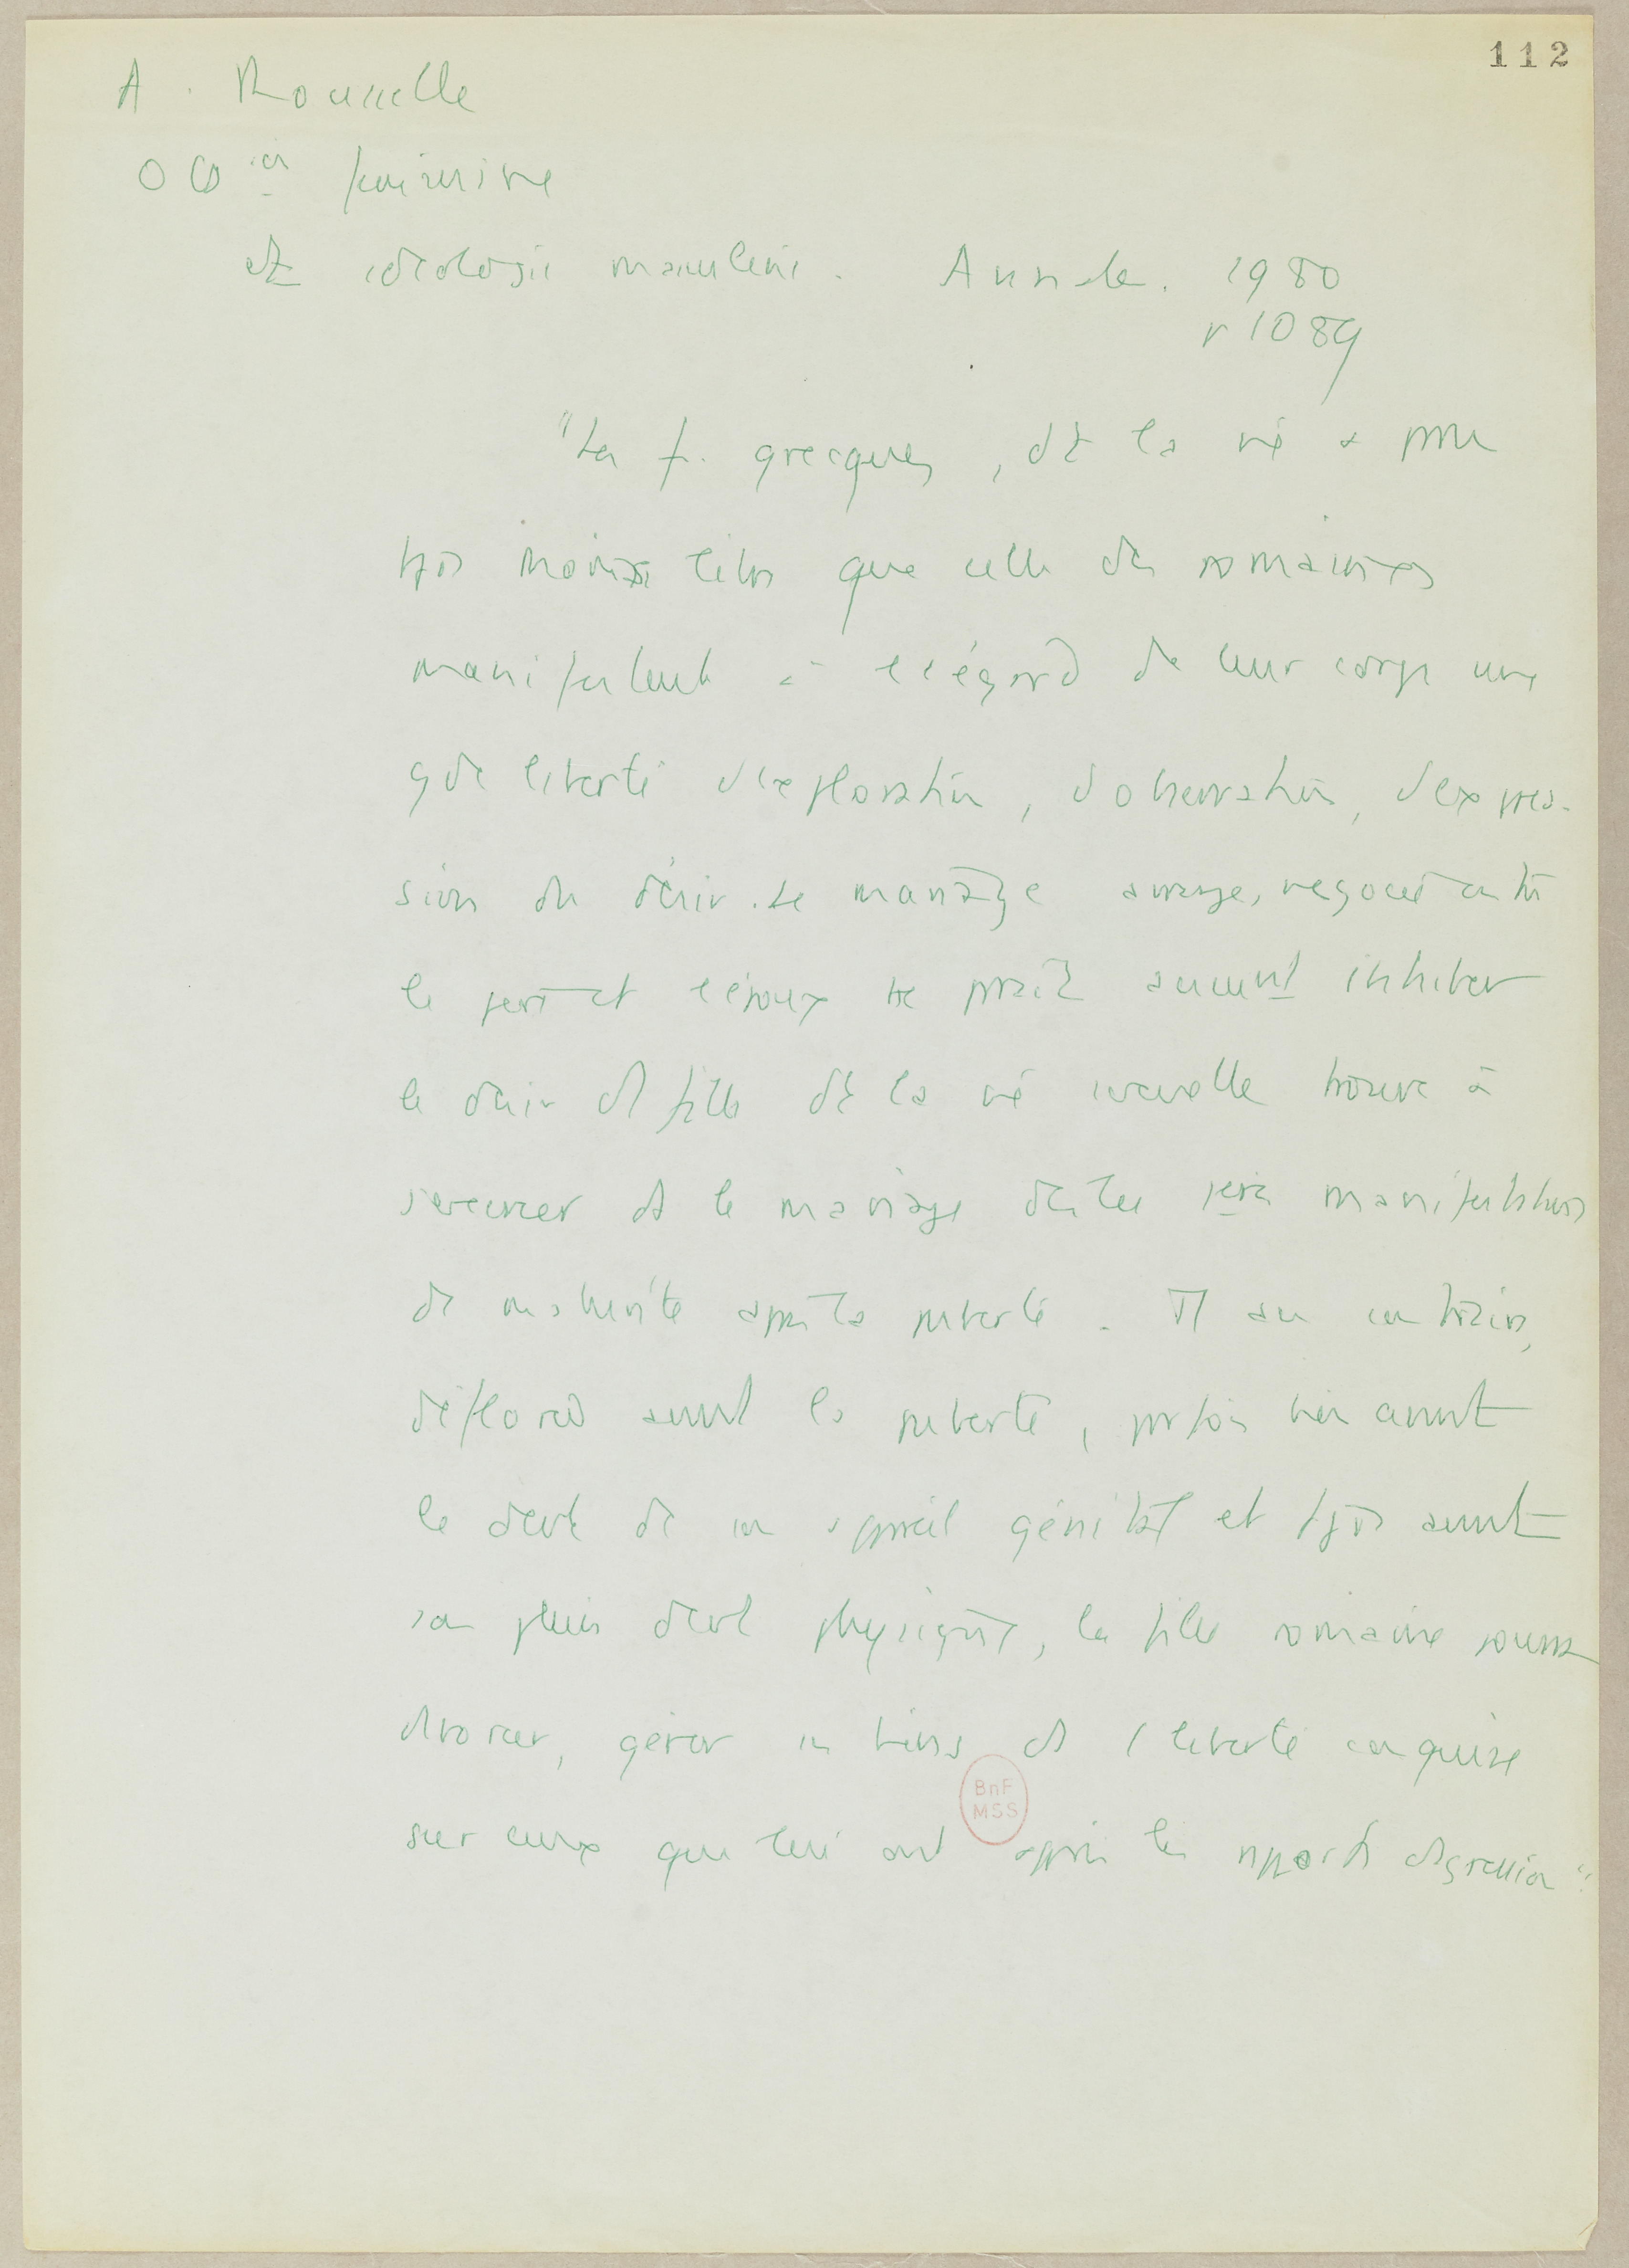 112
A. Rousselle
féminine
et idéologie masculine. Annales. 1980
p 1089
"Les f. grecques, dt la vie a pu
moins libre que celle des romaines
manifestent à l'égard de leur corps une
gde liberté d'exploration, d'observation, d'expres-
sion du désir. Le mariage arrangé, négocié entre
le père et l'époux ne paraît aucunt inhiber
le désir de filles dt la vie sexuelle trouve à
s'exercer ds le mariage dès les 1ères manifestations
de maturité après la puberté. Au contraire,
déflorée avant la puberté, parfois bien avant
le devt de son appareil génital et avant
son plein devt physique, la fille romaine pourra
divorcer, gérer ses biens ds 1 liberté conquise
sur ceux qui lui ont appris les rapports d'agression"
BnF
MSS